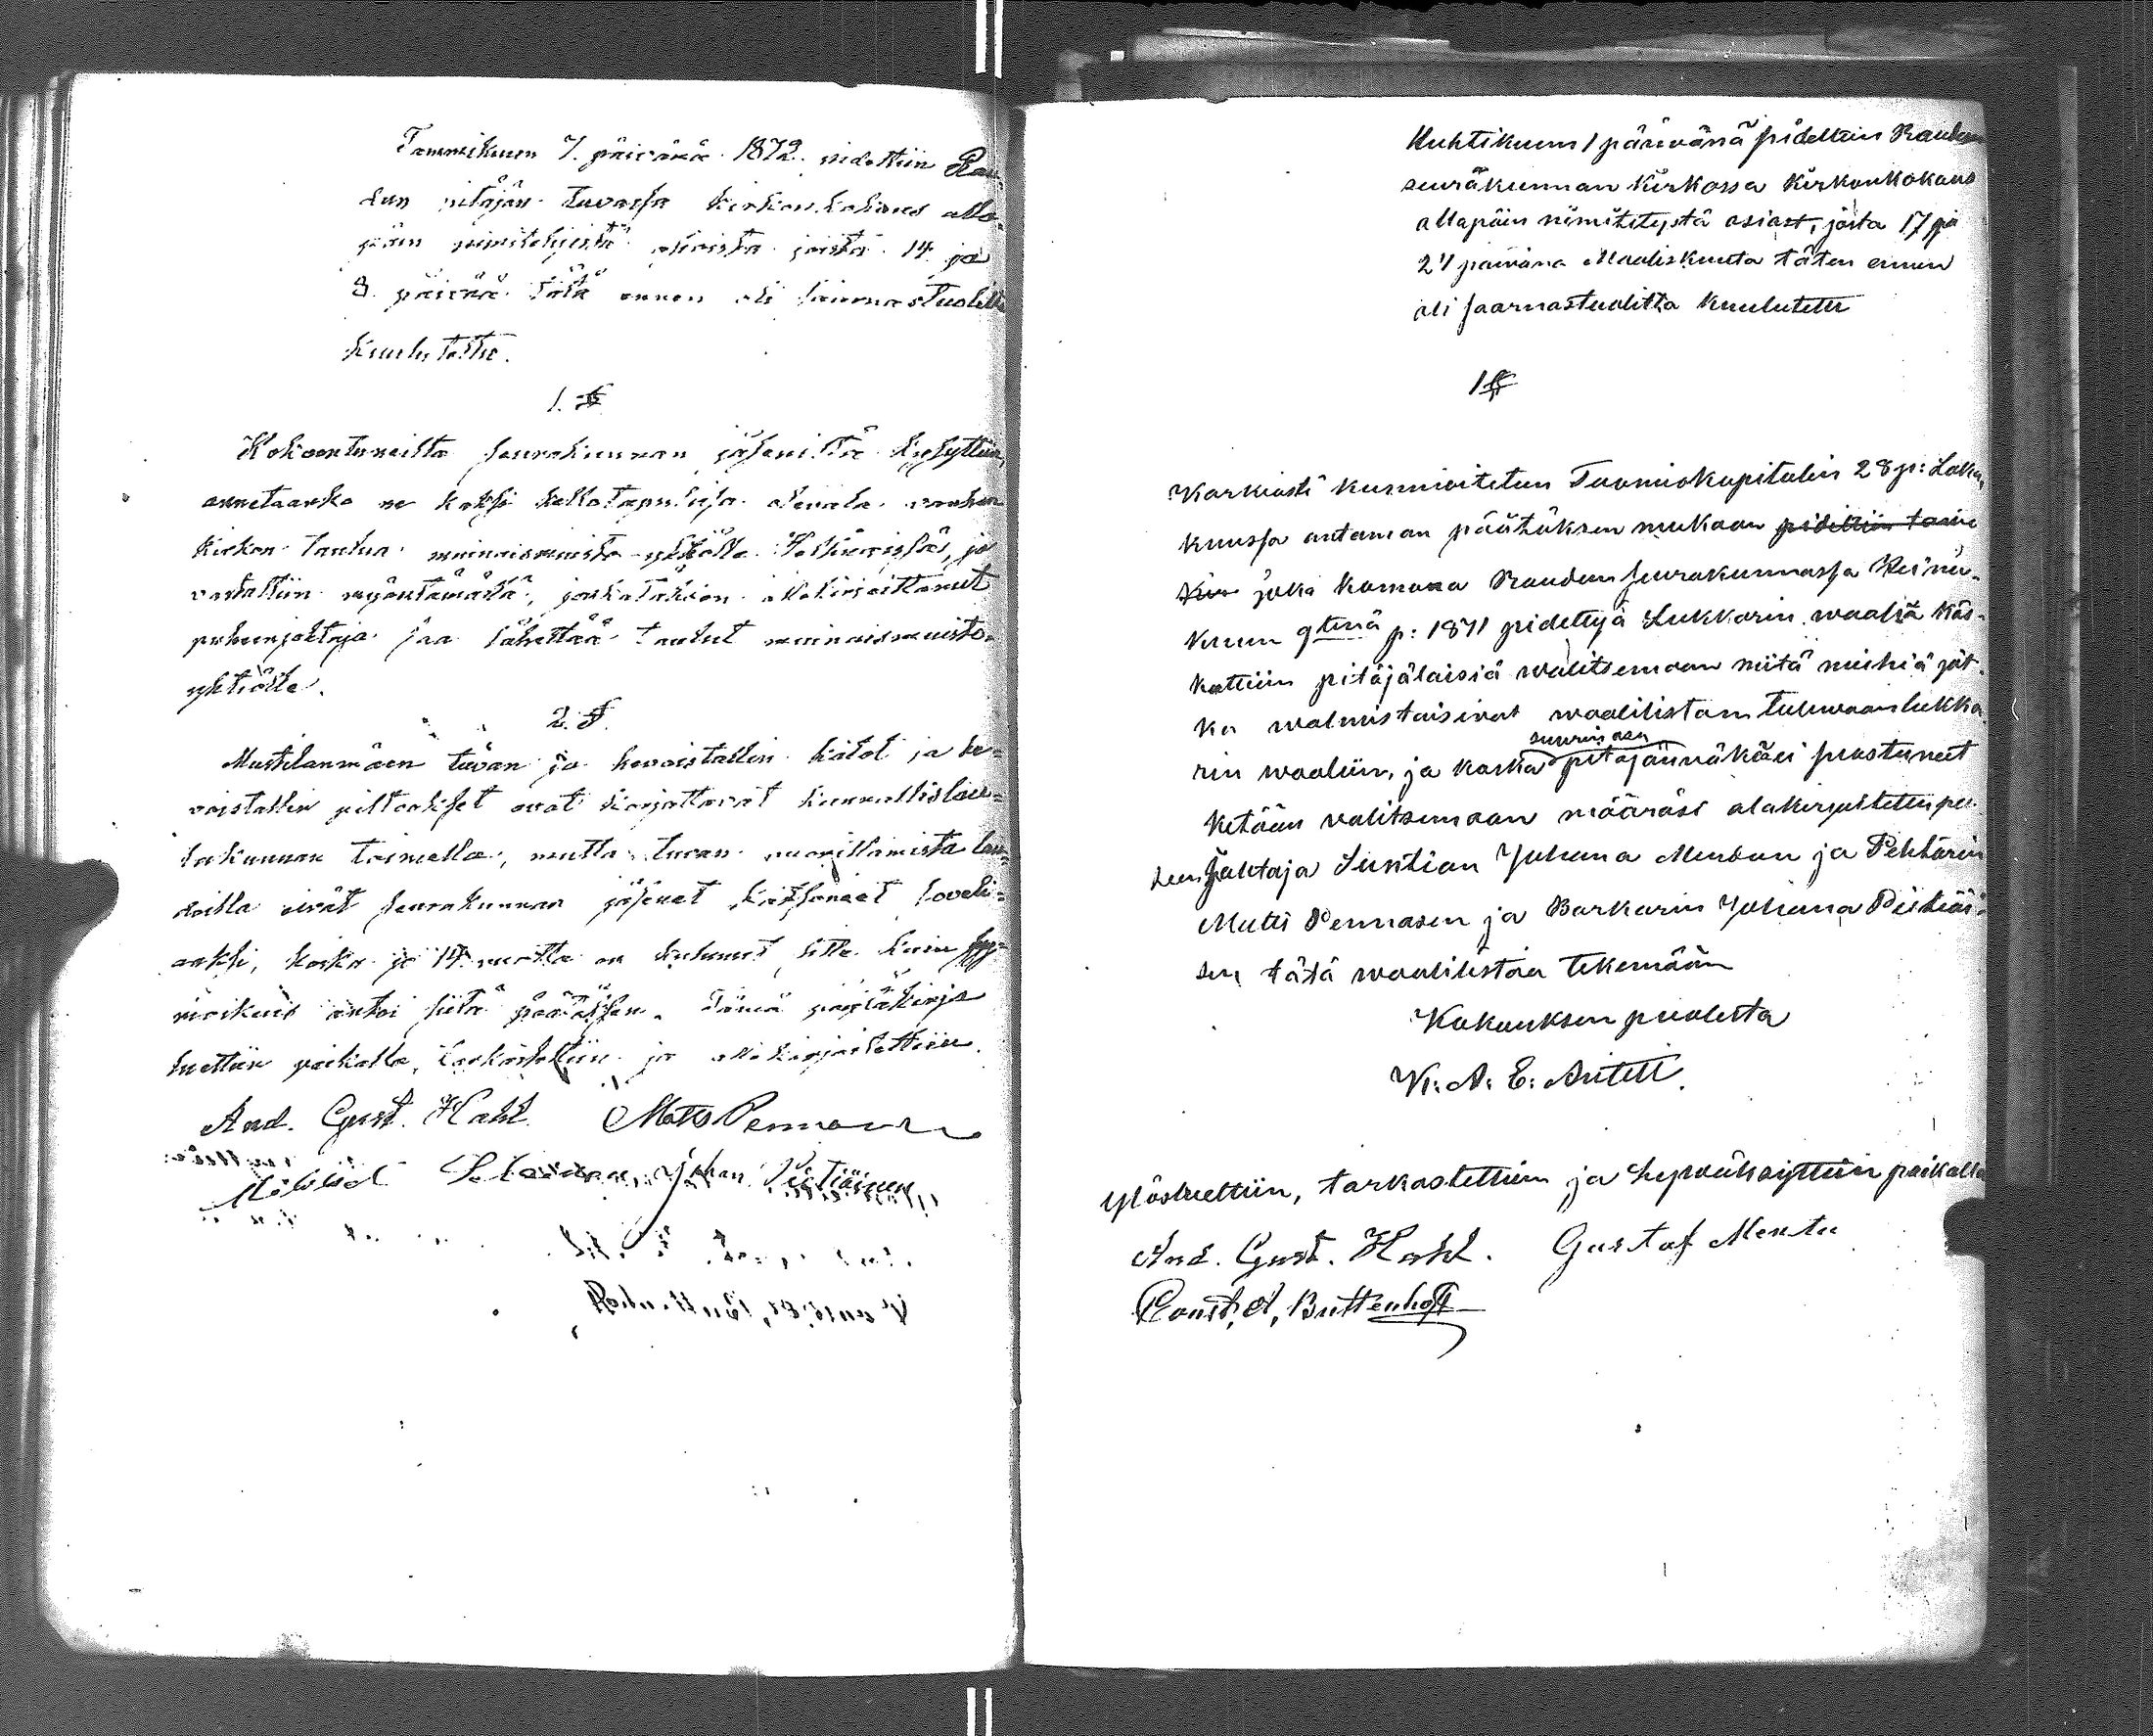 Tammikuun 7. päivänä 1872. pidettiin Rau-
dun pitäjän tuvassa kirkonkokous alla-
päin nimitetyistä asioista joista 14. ja
8. päivää tätä ennen oli saarnastuolilta
kuulutettu.
1. §
Kokoontuneilta seurakunnan jäseniltä kysyttiin,
annetaanko ne kaksi kellotapulissa olevata vanhan
kirkon taulua muinaismuisto-yhtiölle Helsingissä, ja
vastattiin myöntämällä, jonkatähden allekirjoittanut
puheenjohtaja saa lähettää taulut muinaismuisto-
yhtiölle.
2. §.
Mustilanmäen tuvan ja hevoistallin katot ja he-
voistallin pilttoukset ovat korjattavat kunnallislau-
takunnan toimella, mutta tuvan vuorittamista lau-
doilla eivät seurakunnan jäsenet katsoneet soveli-
aaksi, koska jo 14 vuotta on kulunut siitä kuin
antoi siitä päätöksen. Tämä pöytäkirja
luettiin paikalla, tarkastettiin ja allekirjoitettiin.
And. Gust. Hahl. Matts Pennanen
Johan Piitiäinen
Huhtikuun 1 päivänä pidettiin Raudun
seurakunnan kirkossa kirkonkokous
allapäin nimitetystä asiast, josta 17 ja
24 päivänä Maaliskuuta täten ennen
oli saarnastuolilta kuulutettu
1 §
Korkiasti kunnioitetun Tuomiokapitulin 28 p: Loka-
kuussa antaman päätöksen mukaan pidettiin
joka kumosa Raudun seurakunnassa Heinä-
kuun 9tenä p: 1871 pidettyä Lukkarin vaalia käs-
kettiin pitäjäläisiä valitsemaan niitä miehiä jot-
ka valmistaisivat vaalilistan tulevaan lukka-
rin vaaliin, ja koska suurin osa pitäjännäkö ei suostuneet
ketään valitsemaan määräsi alakirjoitettu pu-
heenjohtaja Siivtian Juhana Mentun ja Pehtorin
Matti Pennasen ja Karkarin Juhana Piitiäi-
sen tätä vaalilistaa tekemään
Kokouksen puolesta
K. A. E. Antell.
Ylösluettiin, tarkastettiin ja hyväksyttiin paikalla
And. Gust. Hahl. Gustaf Mentu
Const. A, Buttenhoff